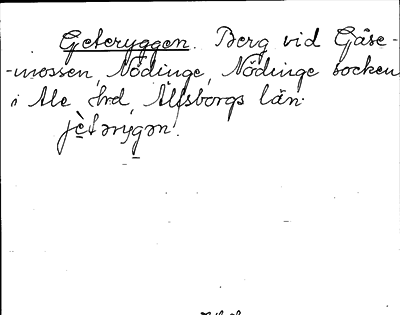 Geteryggen. Berg vid Gåse-
-mossen, Nödinge, Nödinge socken
i Ale Hrd, Älfsborgs län.
jètərygən.